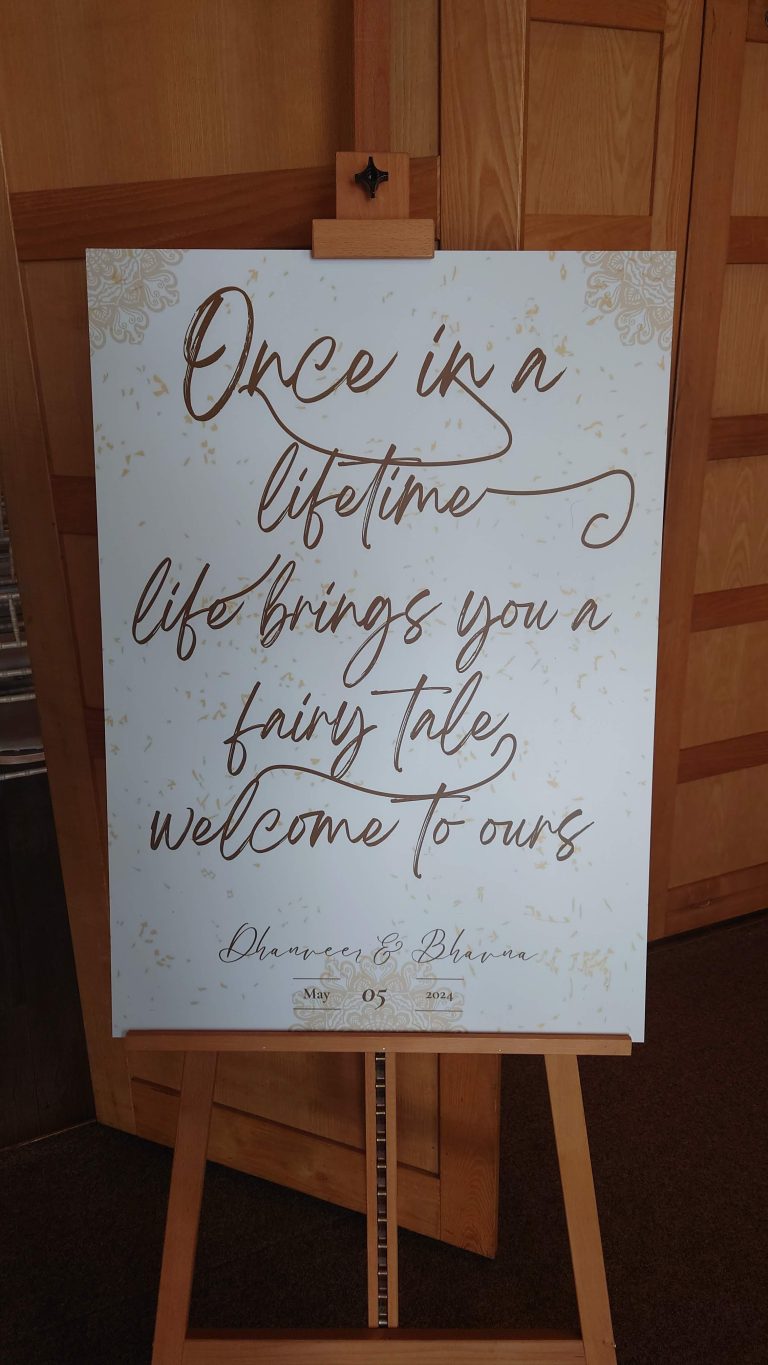 Once in a
lifetime
life brings you a
fairy tale
welcome to ours
Dhanveer & Bhavna
May 05 2024